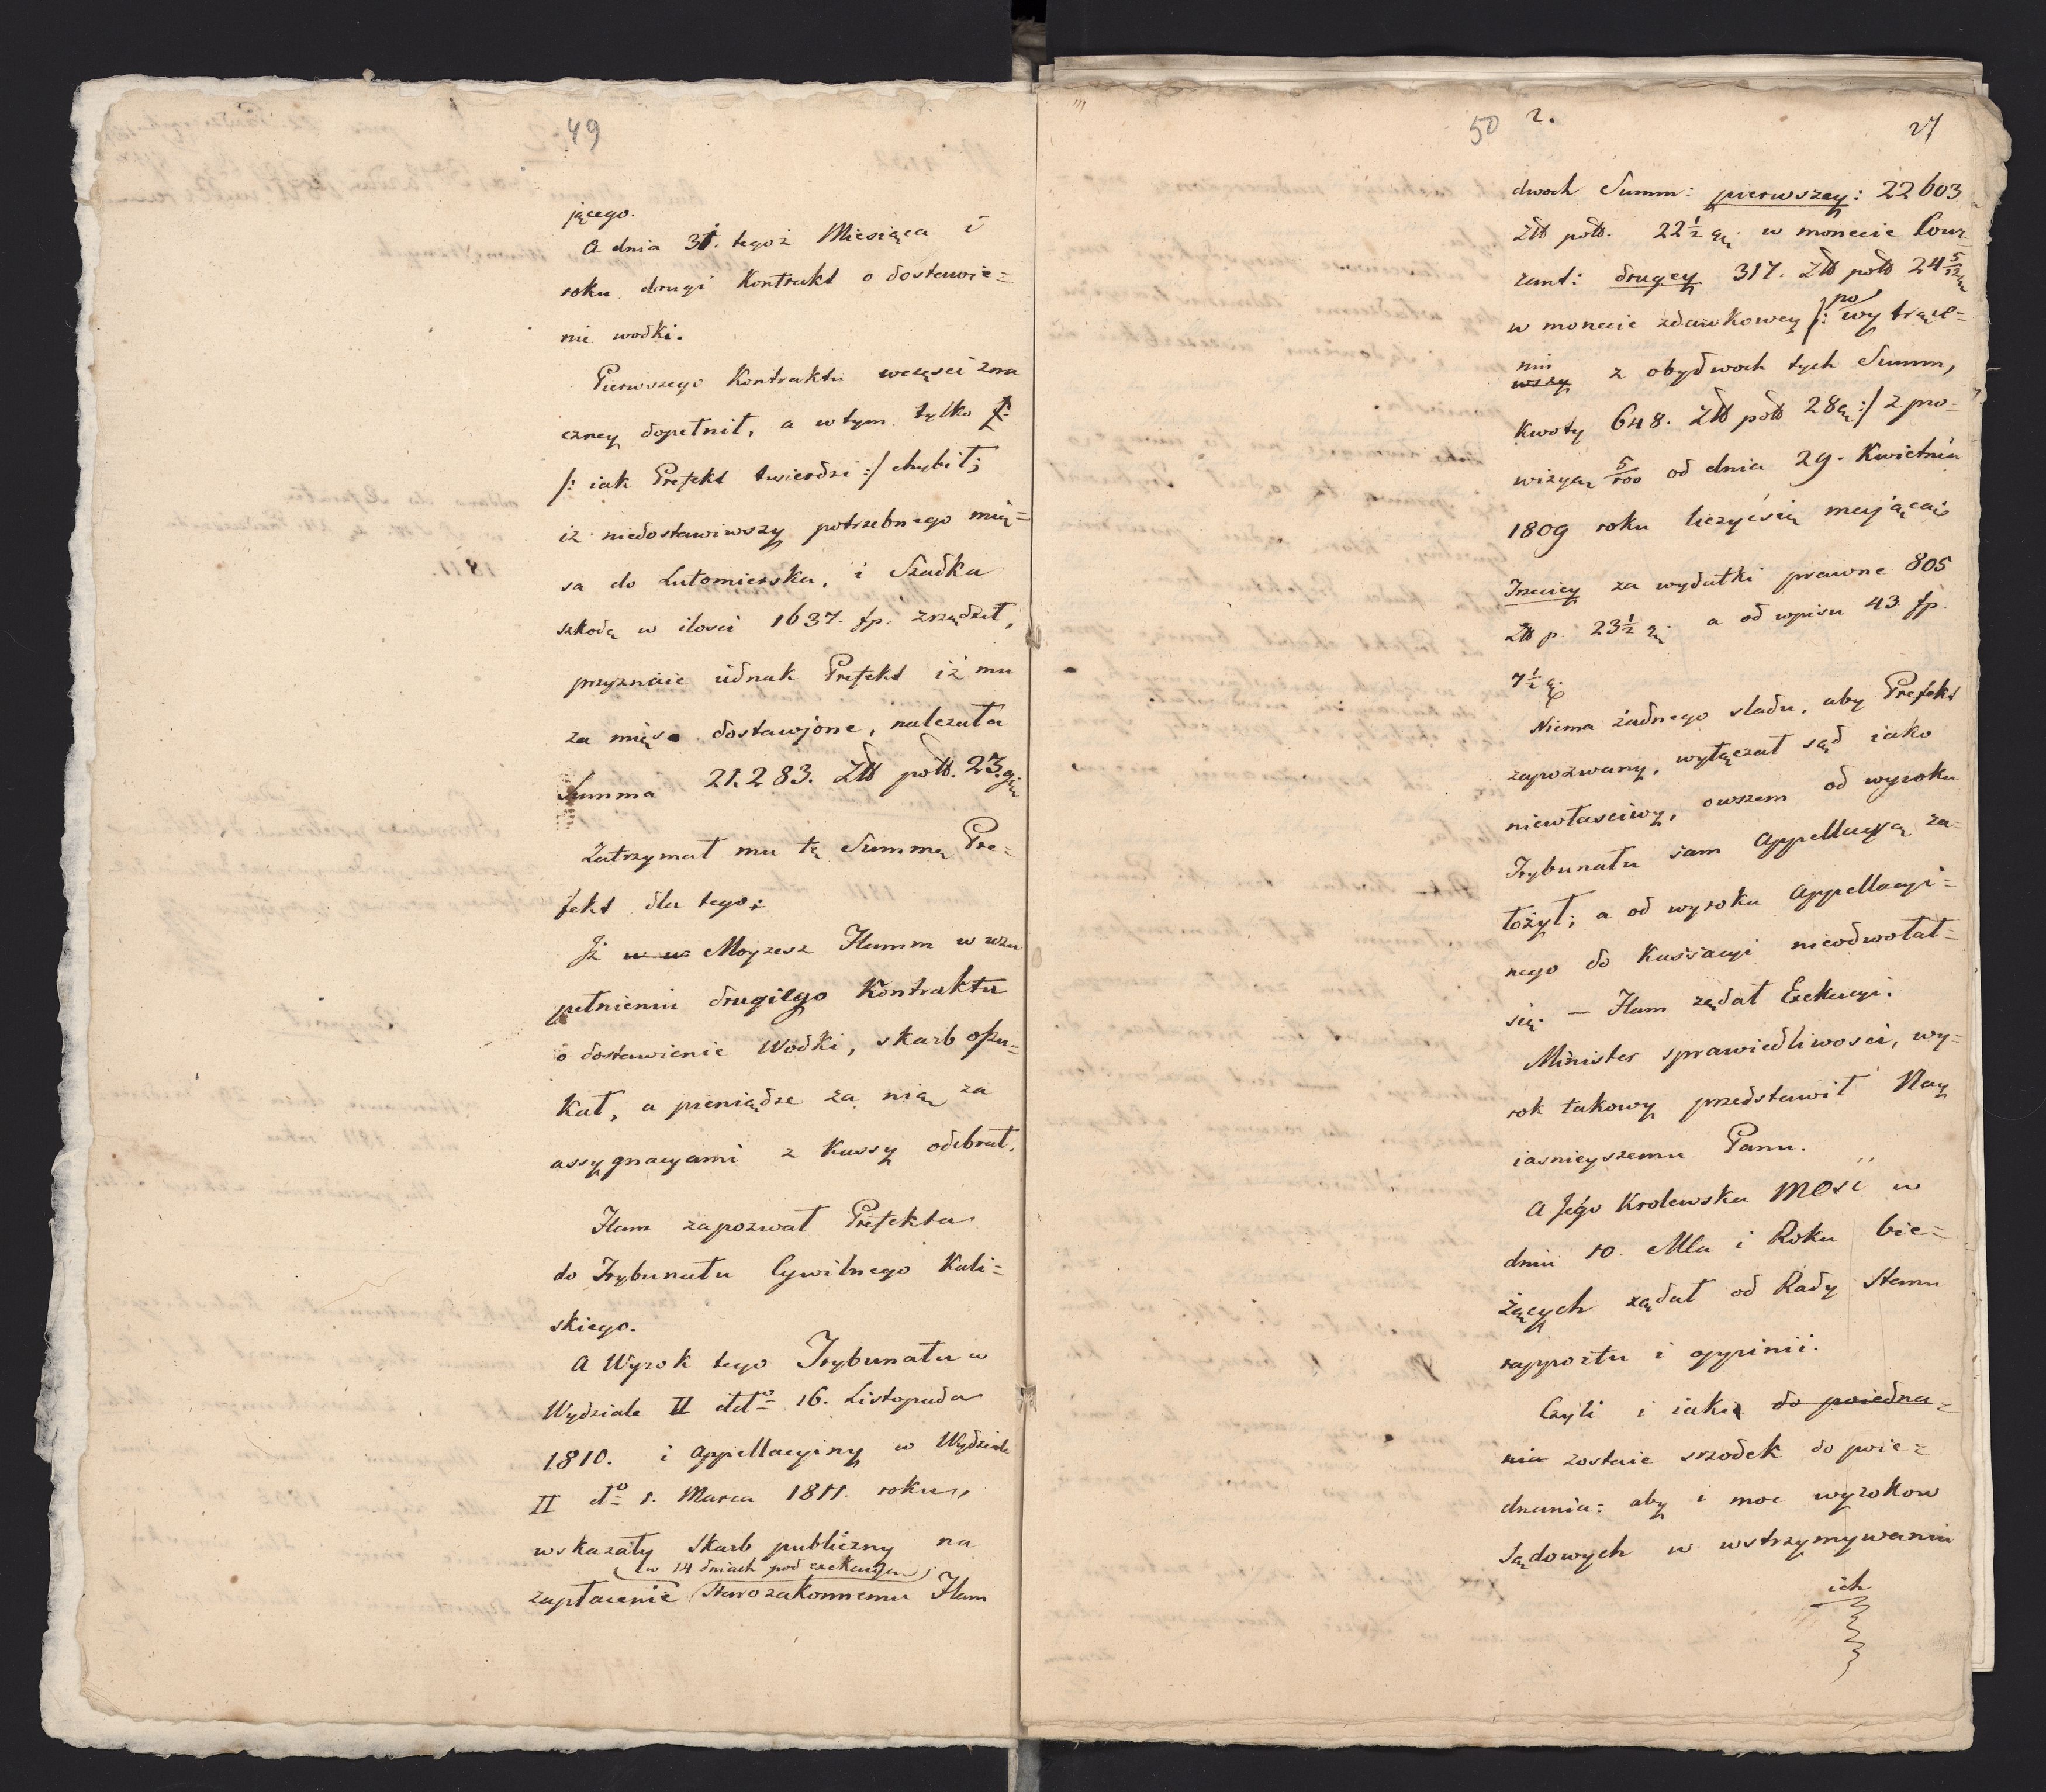 49
jącego.
A dnia 31. tegoż Miesiąca i
roku drugi Kontrakt o dostawie=
nie wodki.
Pierwszego Kontraktu wczęsci zna
czney dopełnił, a w tym tylko
/: iak Prefekt twierdzi :/ chybił;
iż niedostawiwszy potrzebnego mię=
sa do Lutomierska, i Szadka
szkodę w ilosci 1637. fp. zrządził,
przyznaie iednak Prefekt iż mu
za mięso dostawione, należała
Summa 21.283. Złł poll. 23 g
Zatrzymał mu tę Summę Pre=
fekt dla tego:
Jż w w Moyzesz Hamm w uzu
pełnieniu drugiego Kontraktu
o dostawienie Wodki, skarb oszu=
kał, a pieniądze za nią za
assygnacyami z Kassy odebrał.
Ham zapozwał Prefekta
do Trybunału Cywilnego Kali=
skiego.
A Wyrok tego Trybunału w
Wydziale II ddto 16. Listopada
1810. i Appellacyiny w Wydziale
II dto 1. Marca 1811. roku,
wskazały Skarb publiczny na
w 14 dniach pod exekucyą
zapłacenie Starozakonnemu Ham
50 2. 27
dwoch Summ: pierwszey: 22603
Złł poll. 22½ g w monecie Kour
rant: drugiey 317. Złł poll 24 5/12
w monecie zdawkowey /: po wytrące=
niu wszy z obydwoch tych Summ,
kwoty 648. Złł poll 28 g :/ z pro=
wizyą 5/100 od dnia 29. Kwietnia
1809 roku liczyćsię mającą;
Trzeciey za wydatki prawne 805
Złł p. 23½ g a od wpisu 43 fp.
7½ g
Niema żadnego sladu, aby Prefekt
zapozwany, wyłączał sąd iako
niewłasciwy, owszem od wyroku
Trybunału sam Appellacyą za=
łożył; a od wyroku Appellacyi=
nego do Kassacyi nieodwołał=
się. — Ham żądał Exekucyi.
Minister sprawiedliwosci, wy=
rok takowy przedstawił Nay
iasnieyszemu Panu.
A Jego Krolewska Mość w
dniu 10. Mca i Roku bie=
żących żądał od Rady Stanu
rapportu i oppinii.
Czyli i iaki do poiedna=
nia zostaie srzodek do poie=
dnania: aby i moc wyrokow
Sądowych w wstrzymywaniu
ich